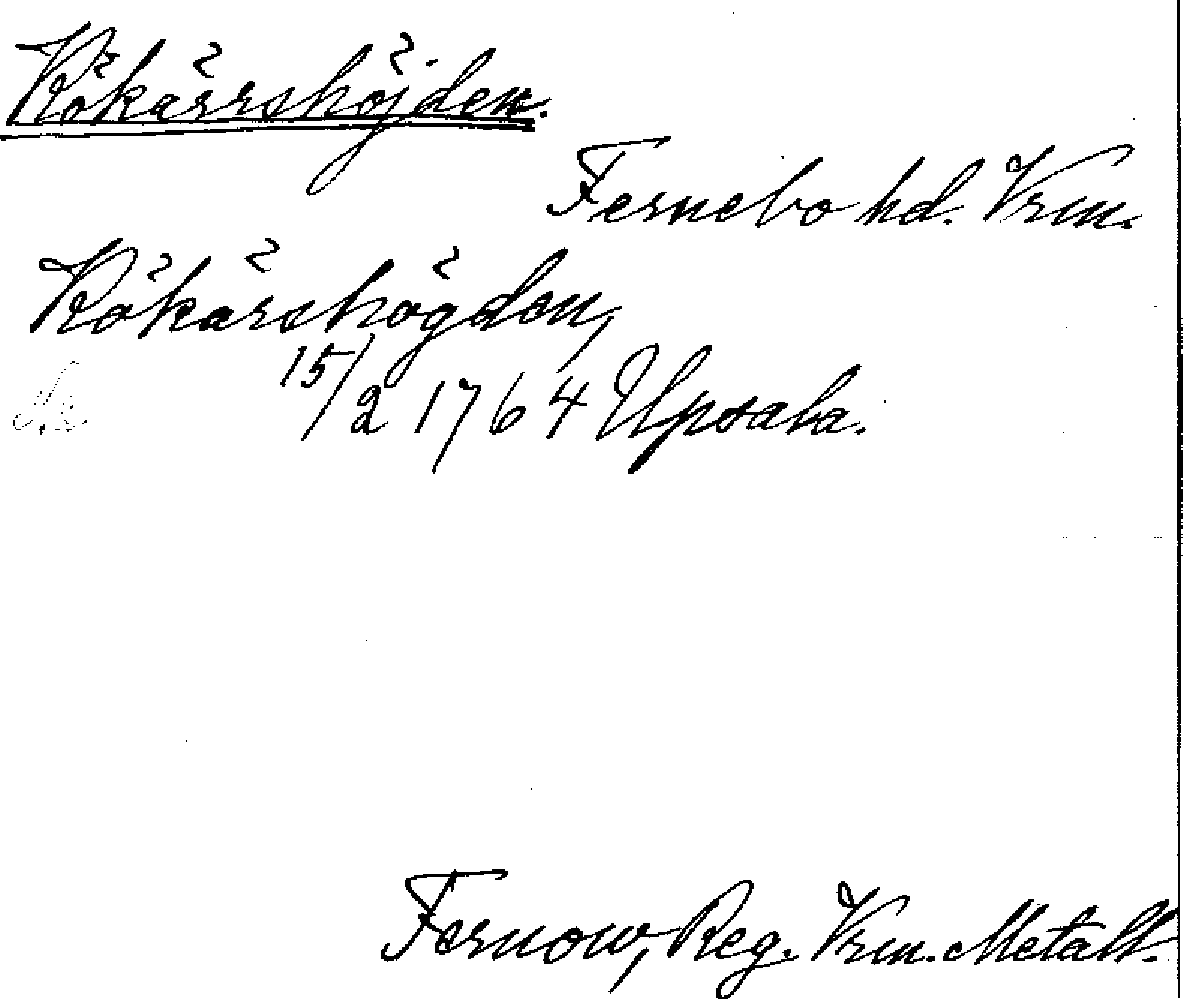 Kökärrshöjden.
Fernebo hd. Vrm.
Kökärshögden,
15/2 1764 Upsala.
Fernow, Reg. Vrm. Metall.